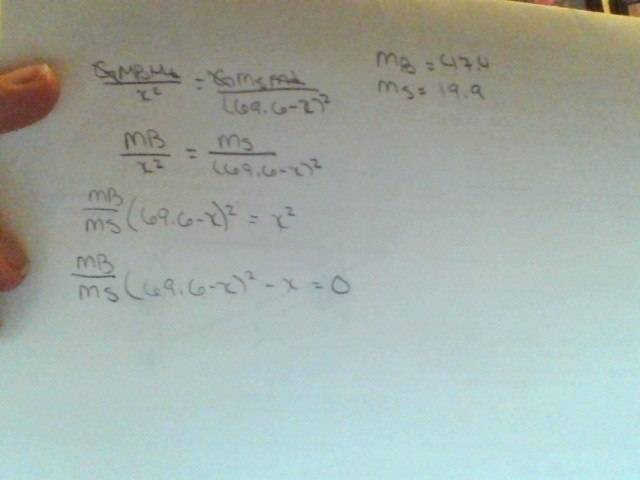 GMBMd/x² = GMSMd/(69.6-x)²
MB = 47.4
MS = 19.9
MB/x² = MS/(69.6-x)²
MB/MS (69.6-x)² = x²
MB/MS (69.6-x)² - x = 0